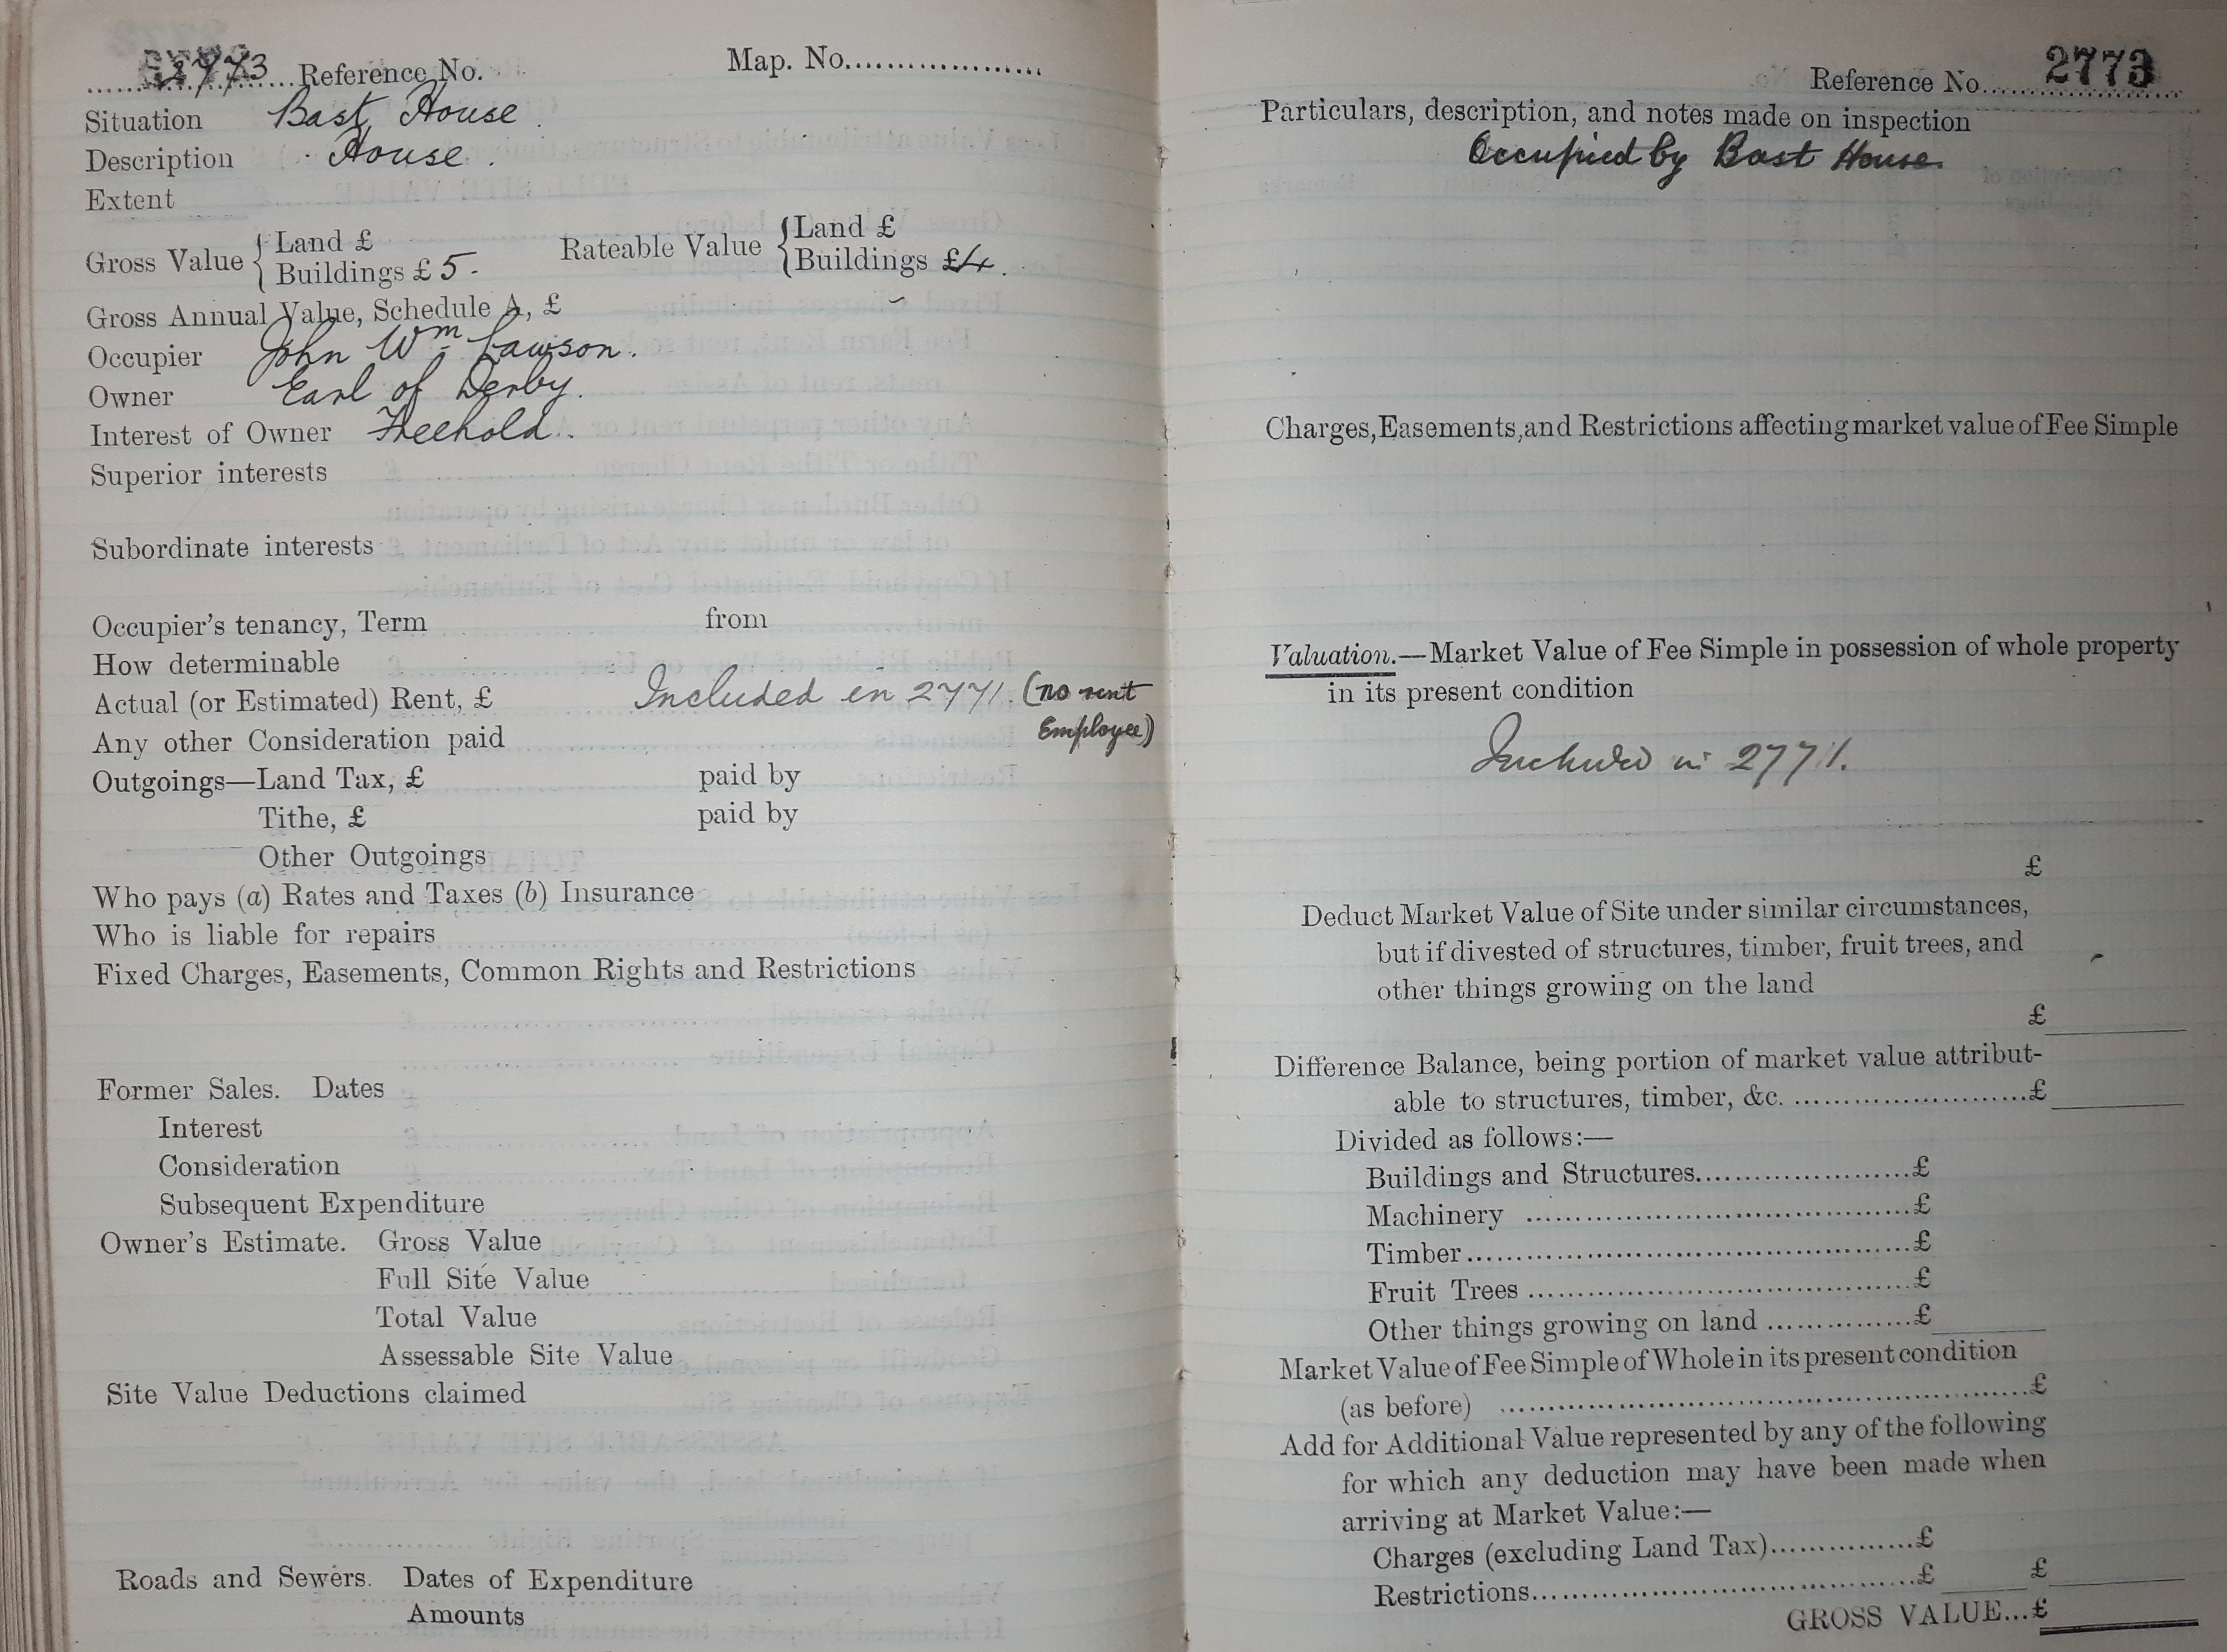 2773 Reference No. Map. No.
Situation Bast House.
Description House.
Extent
Gross Value { Land £ Rateable Value { Land £
Buildings £ 5 - Buildings £4.
Gross Annual Value, Schedule A, £
Occupier John Wm Lawson.
Owner Earl of Derby.
Interest of Owner Freehold.
Superior interests
Subordinate interests
Occupier's tenancy, Term from
How determinable
Actual (or Estimated) Rent, £ Included in 2771. (no rent
Any other Consideration paid Employee)
Outgoings—Land Tax, £ paid by
Tithe, £ paid by
Other Outgoings
Who pays (a) Rates and Taxes (b) Insurance
Who is liable for repairs
Fixed Charges, Easements, Common Rights and Restrictions
Former Sales. Dates
Interest
Consideration
Subsequent Expenditure
Owner's Estimate. Gross Value
Full Site Value
Total Value
Assessable Site Value
Site Value Deductions claimed
Roads and Sewers. Dates of Expenditure
Amounts
Reference No. 2773
Particulars, description, and notes made on inspection
Occupied by Bast House.
Charges, Easements, and Restrictions affecting market value of Fee Simple
Valuation.—Market Value of Fee Simple in possession of whole property
in its present condition
Included in 2771.
£
Deduct Market Value of Site under similar circumstances,
but if divested of structures, timber, fruit trees, and
other things growing on the land
£
Difference Balance, being portion of market value attribut-
able to structures, timber, &c. £
Divided as follows:—
Buildings and Structures £
Machinery £
Timber £
Fruit Trees £
Other things growing on land £
Market Value of Fee Simple of Whole in its present condition
(as before) £
Add for Additional Value represented by any of the following
for which any deduction may have been made when
arriving at Market Value:—
Charges (excluding Land Tax) £
Restrictions £ £
GROSS VALUE...£